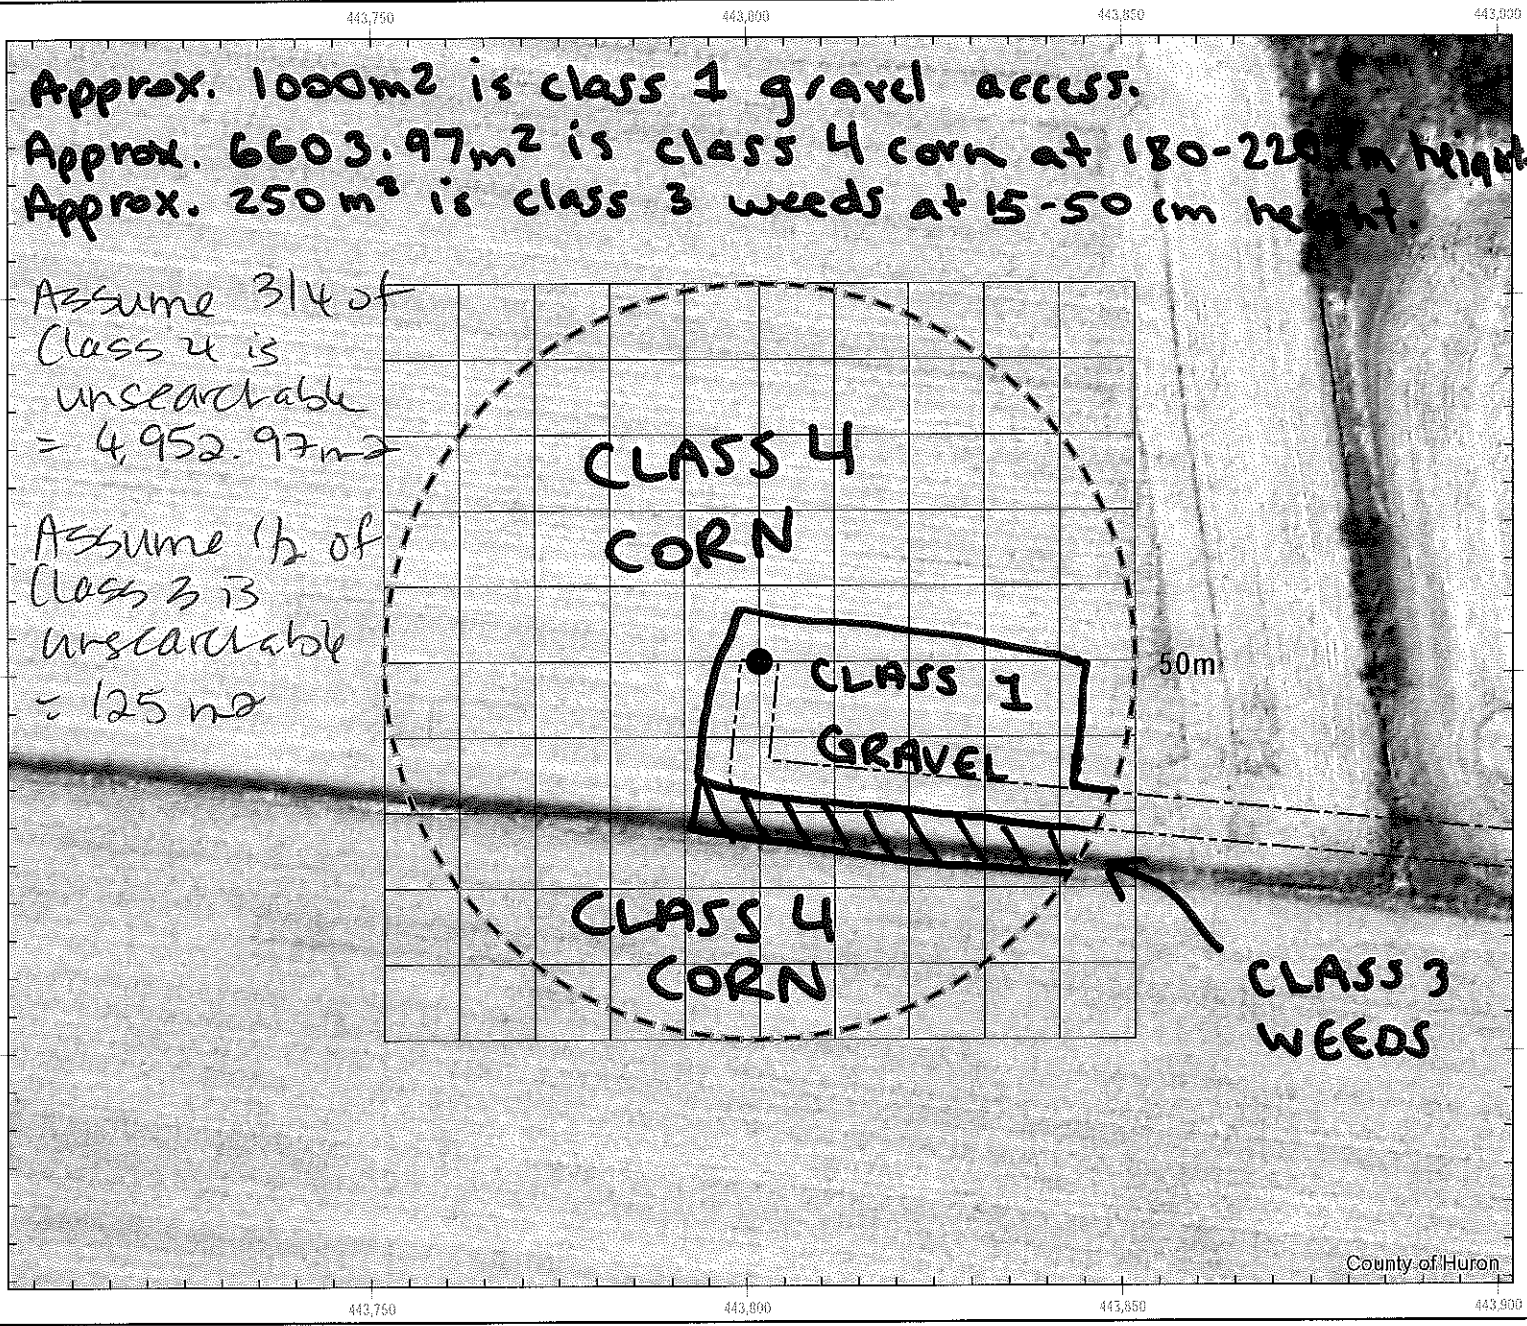 443,750 443,800 443,850 443,900
Approx. 1000m2 is class 1 gravel access.
Approx. 6603.97m2 is class 4 corn at 180-220cm height.
Approx. 250m2 is class 3 weeds at 15-50 cm height.
Assume 3/4 of
Class 4 is
unsearchable
= 4,952.97m2
Assume 1/2 of
Class 3 is
unsearchable
= 125 m2
CLASS 4
CORN
50m
CLASS 1
GRAVEL
CLASS 4
CORN
CLASS 3
WEEDS
County of Huron
443,750 443,800 443,850 443,900